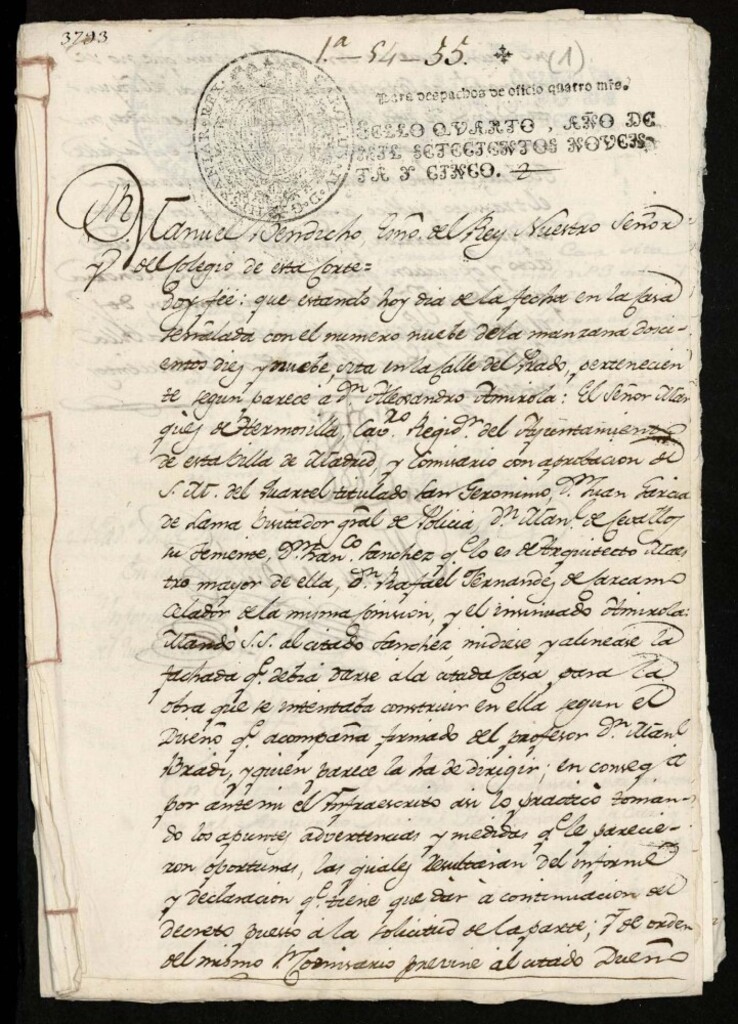 3793
1.ª-54-55. (1)
Para despachos de oficio quatro mrs.
SELLO QVARTO, AÑO DE
MIL SETECIENTOS NOVEN-
TA Y CINCO.
CAROLUS IV D. G. HISPANIAR. REX
Manuel Bendicho Esno. del Rey Nuestro Señor
y del Colegio de esta Corte=
Doy fee: que estando hoy dia de la fecha en la Casa
señalada con el numero nuebe de la manzana doscie-
entos diez y nuebe, sita en la Calle del Prado, pertenecien
te segun parece á Dn. Alessandro Amirola: El Señor Mar
ques de Hermosilla, Cavro. Regidr. del Ayuntamiento
de esta Villa de Madrid, y Comisario con aprobacion de
S. M. del Quartel titulado San Geronimo, Dn. Juan Garcia
de Lama Visitador gral de Policia, Dn. Manl. de Cevallos
su teniente, Dn. Franco. Sanchez qe. lo es de Arquitecto Maes
tro mayor de ella, Dn. Rafael Fernandez de
Celador de la misma Comision, y el insinuado Amirola:
Mandó S.S. al citado Sanchez, midiese y alinease la
fachada qe. debia darse á la citada Casa, para la
obra que se intentaba construir en ella segun el
Diseño qe. acompaña firmado del profesor Dn. Manl.
Bradi, y quien parece la ha de dirigir; en conseqa.
por ante mi el Infraescrito asi lo practicó toman-
do los apuntes advertencias y medidas qe. le parecie-
ron oportunas, las quales resultarán del informe
y declaracion qe. tiene que dar á continuacion del
decreto puesto á la solicitud de la parte; Y de orden
del mismo Sr. Comisario previne al citado Dueño